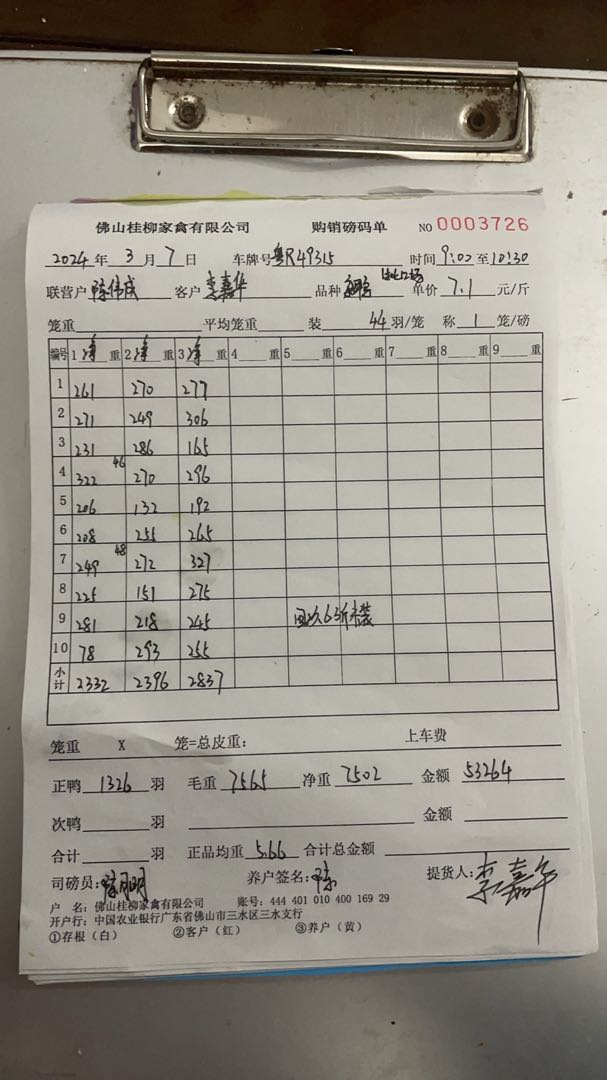 佛山桂柳家禽有限公司 购销磅码单 NO 0003726
2024年 3月 7日 车牌号 粤R49315 时间 9:00至10:30
联营户 陈伟成 客户 李嘉华 品种 单价 7.1 元/斤
笼重 平均笼重 装 44 羽/笼 称 1 笼/磅
编号 1 净重 2 净重 3 净重 4 重 5 重 6 重 7 重 8 重 9 重
1 261 270 277
2 271 249 306
3 231 286 165
4 322 46 270 296
5 206 132 192
6 208 255 265
7 249 48 272 327
8 225 151 275
9 281 218 245
10 78 293 255
小计 2332 2396 2837
笼重 X 笼=总皮重: 上车费
正鸭 1326 羽 毛重 7565 净重 7502 金额 53264
次鸭 羽 金额
合计 羽 正品均重 5.66 合计总金额
司磅员: 养户签名: 陈 提货人: 李嘉华
户 名: 佛山桂柳家禽有限公司 账号: 444 401 010 400 169 29
开户行: 中国农业银行广东省佛山市三水区三水支行
①存根（白） ②客户（红） ③养户（黄）